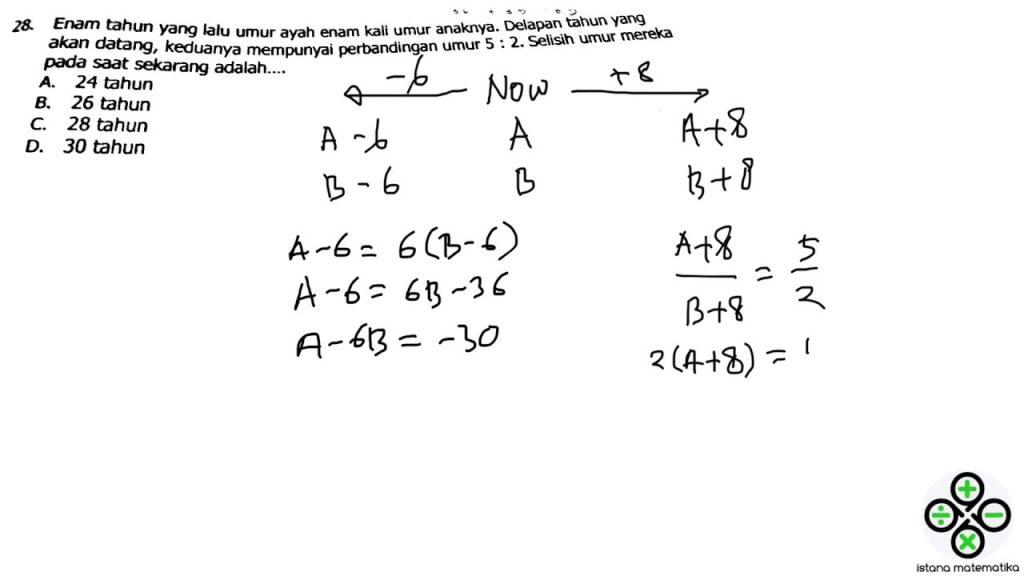 28. Enam tahun yang lalu umur ayah enam kali umur anaknya. Delapan tahun yang
akan datang, keduanya mempunyai perbandingan umur 5 : 2. Selisih umur mereka
pada saat sekarang adalah....
A. 24 tahun
B. 26 tahun
C. 28 tahun
D. 30 tahun
-6 Now +8
A-6 A A+8
B-6 B B+8
A-6 = 6(B-6)
A-6 = 6B-36
A-6B = -30
A+8
B+8
=
5
2
2(A+8) =
istana matematika